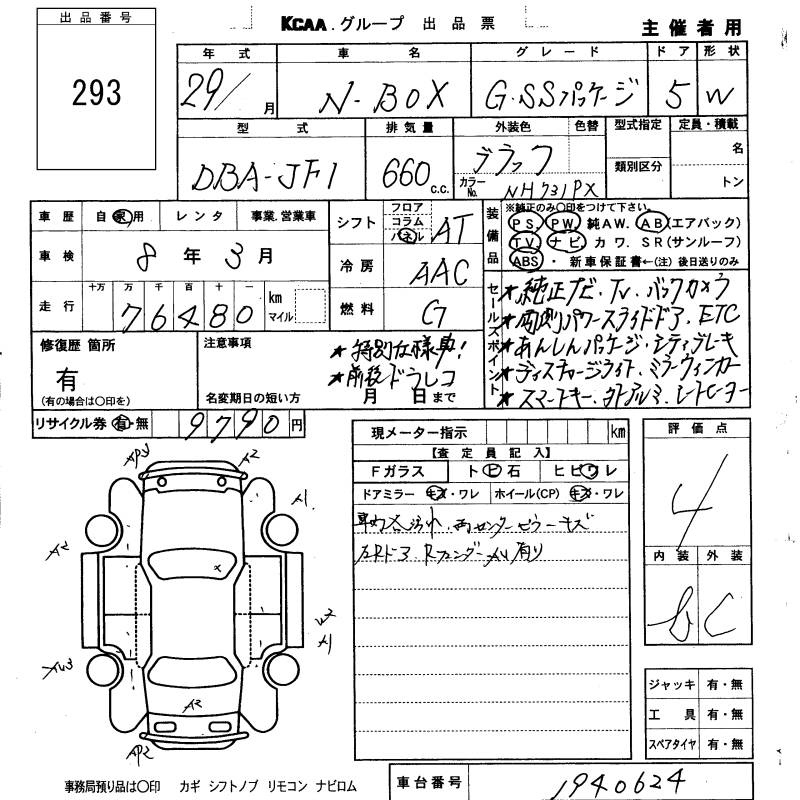 出品番号
293
KCAA.グループ 出品票
主催者用
年式 車名 グレード ドア 形状
29/ 月 N-BOX G・SSパッケージ 5 W
型式 排気量 外装色 色替 型式指定 定員・積載
DBA-JF1 660 C.C. ブラック 名
カラーNo. NH731PX 類別区分 トン
車歴 自家用 レンタ 事業.営業車
シフト フロア コラム パネル AT
装備品 ※純正のみ〇印をつけて下さい。
PS. PW. 純AW. AB(エアバック)
TV. ナビ カワ. SR(サンルーフ)
ABS ・ 新車保証書←(注) 後日送りのみ
車検 8年3月
冷房 AAC
走行 十万 万 千 百 十 一
76480 km マイル
燃料 G
セールスポイント
★純正ナビ.TV.バックカメラ
★両側パワースライドドア.ETC
★あんしんパッケージ・シティブレーキ
★ディスチャージライト.ミラーウィンカー
★スマートキー.タトアルミ.シートヒーター
修復歴 箇所
有
(有の場合は〇印を)
注意事項
★特別仕様車!
★前後ドラレコ
名変期日の短い方 月 日まで
リサイクル券 有・無 9790円
現メーター指示 km
【査定員記入】
Fガラス トビ石 ヒビワレ
ドアミラー キズ・ワレ ホイール(CP) キズ・ワレ
車内合汚れ.両センターピラーキズ
左Rドア.Rフェンダー AU有り
評価点
4
内装 外装
b C
ジャッキ 有・無
工具 有・無
スペアタイヤ 有・無
A2
A1
A2
A2
AP2
事務局預り品は〇印 カギ シフトノブ リモコン ナビロム
車台番号 1940624